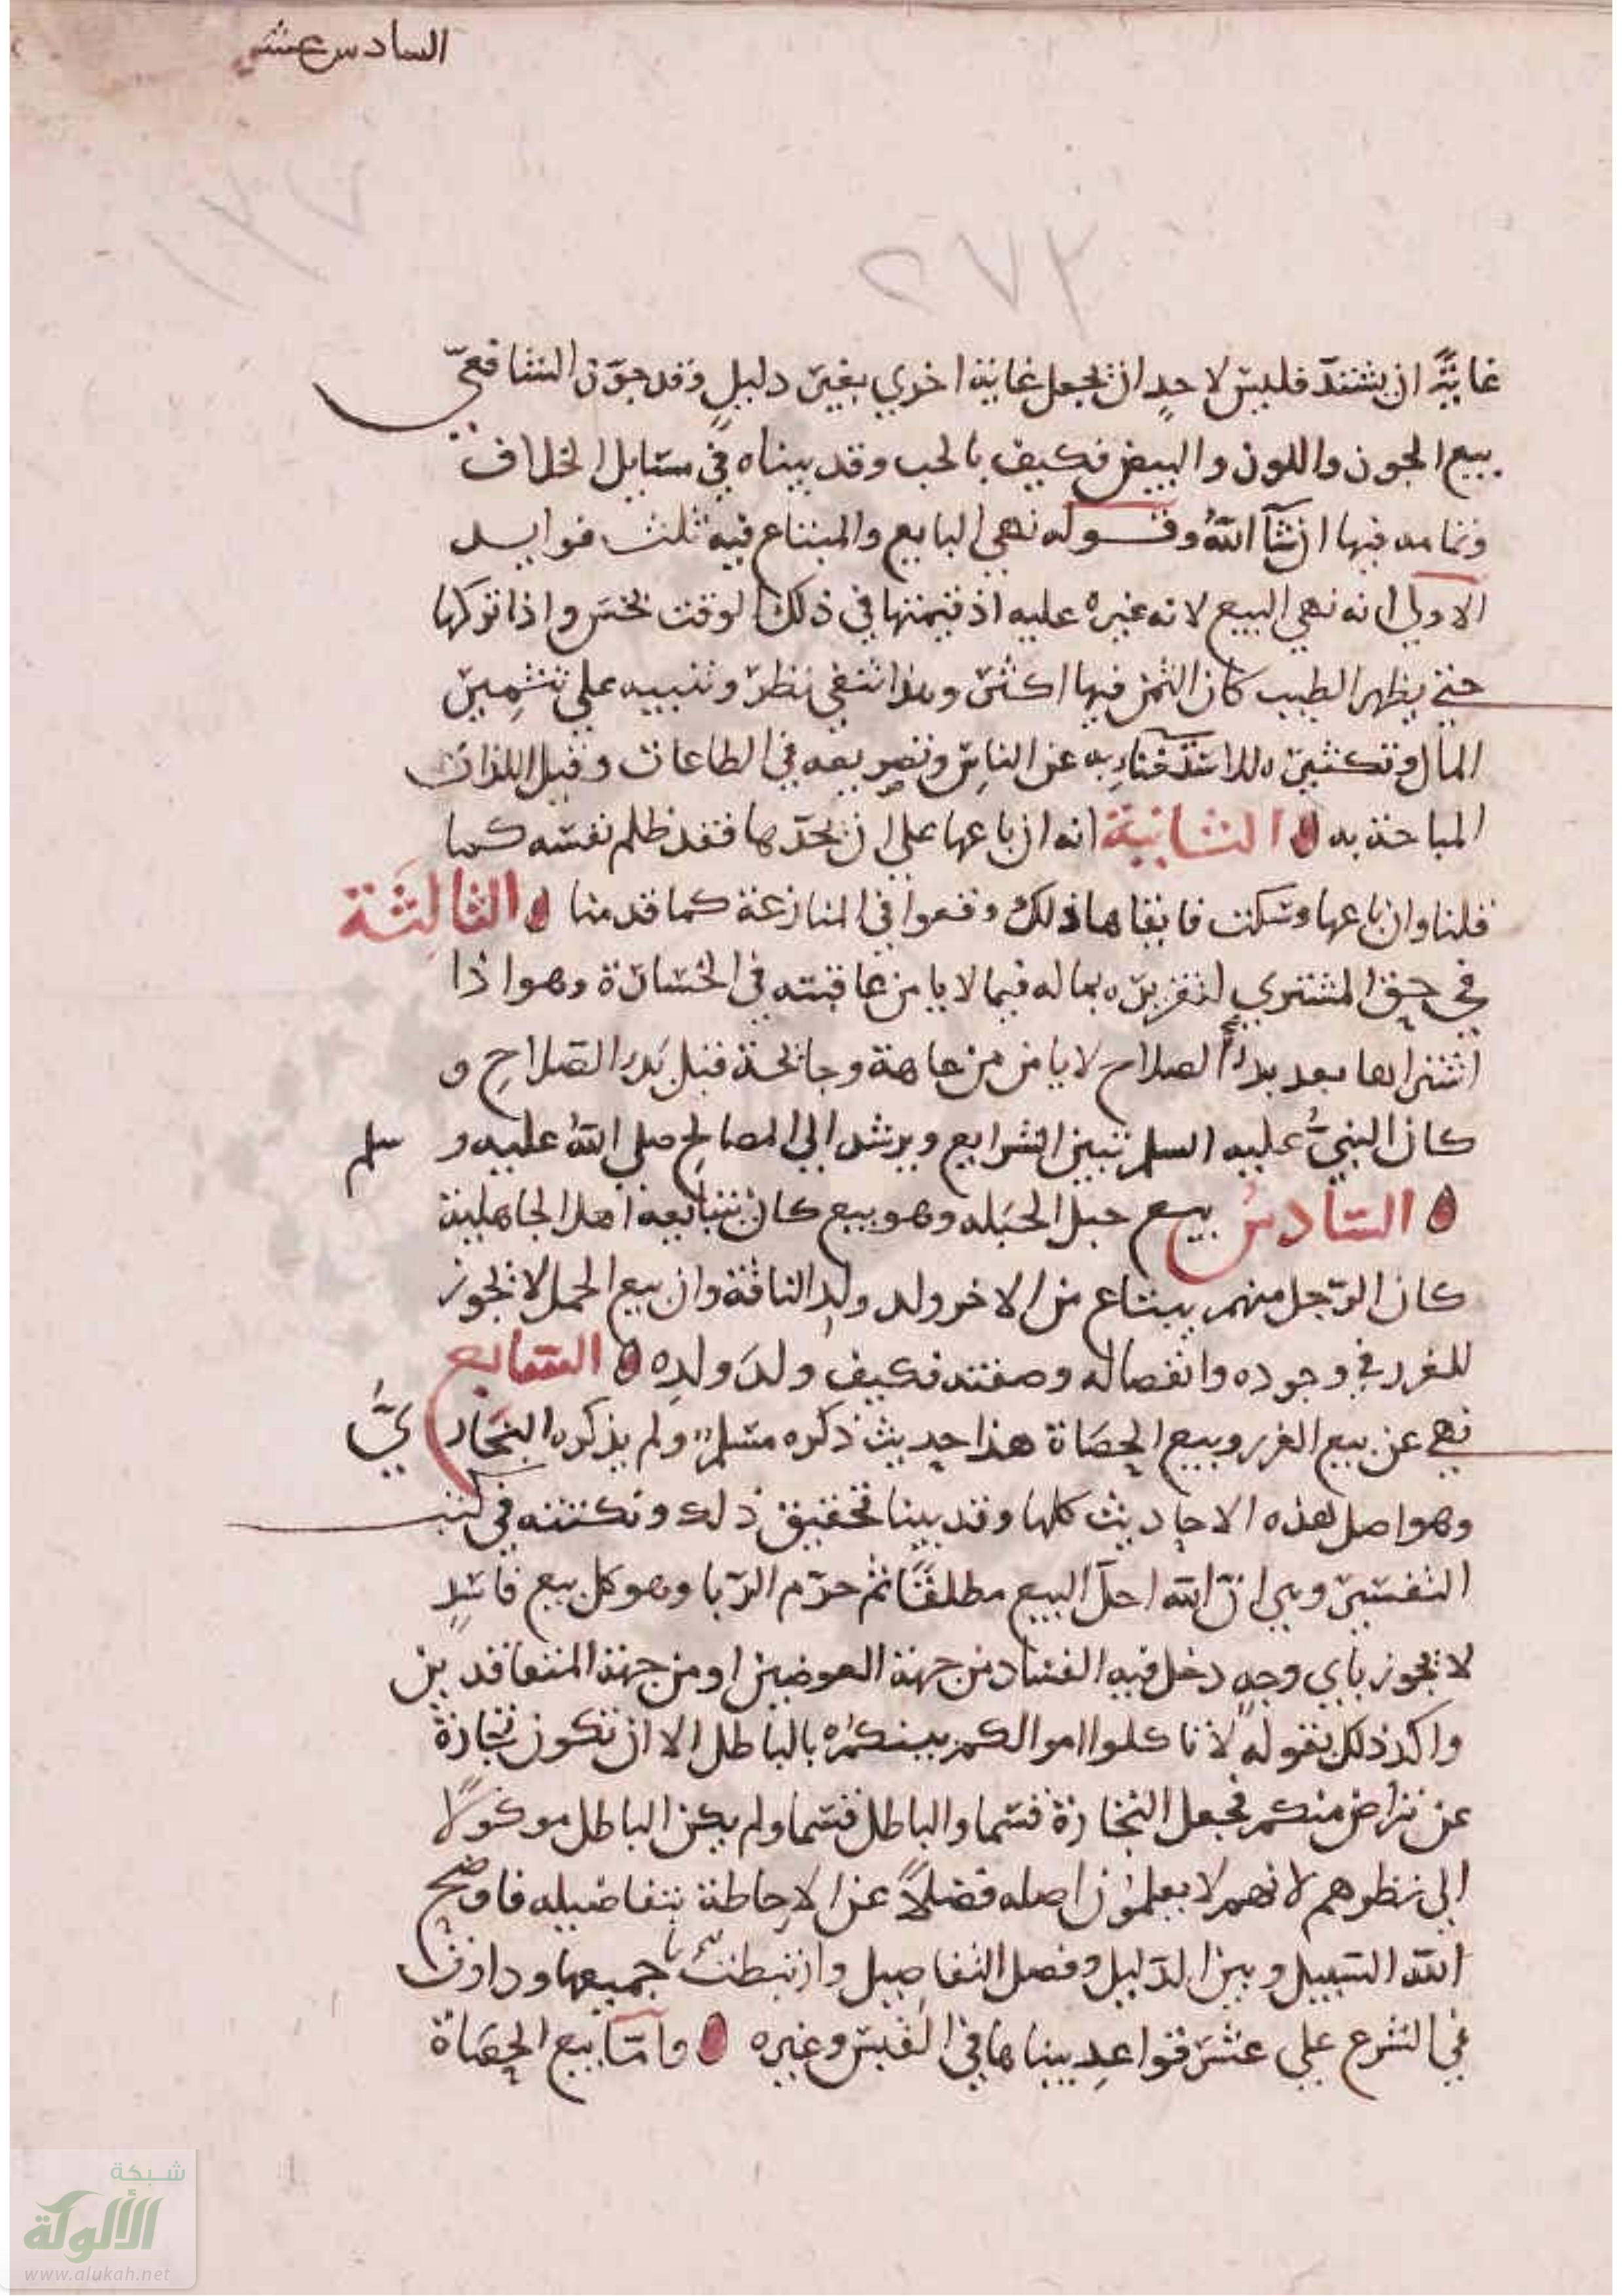 السادس عشر
٢٧٢
١٨٧
غاية ان يشتد فليس لاحد ان يجعل غاية اخري بغير دليل وقد جوز الشافعي
بيع الجوز واللوز والبيض فكيف بالحب وقد بيناه في مسايل الخلاف
وتمامه فيها ان شآ الله وقوله نهي البايع والمبتاع فيه ثلث فوايد
الاولي انه نهي البيع لانه غيره عليه اذ قيمتها في ذلك الوقت بخس واذا تركها
حتي يظهر الطيب كان الثمن فيها اكثر وهذا شفي نظر وتنبيه علي تثمير
المال وتكثيره للاستغناء به عن الناس وتصريفه في الطاعات وقبل اللذات
المباحة به الثانية انه ان باعها علي ان يجدها فقد ظلم نفسه كما
قلنا وان باعها وسكت فابقاها ذلك وقعوا في المنازعة كما قدمنا الثالثة
في حق المشتري لتغريره بماله فيما لا يامن عاقبته في الخسارة وهو اذا
اشتراها بعد بدأ الصلاح لا يامن من عاهة وجائحة قبل بدو الصلاح و
كان النبي عليه السلم تبين الشرايع ويرشد الي المصالح صلي الله عليه و سلم
السادس بيع حبل الحبله وهو بيع كان يتبايعه اهل الجاهلية
كان الرجل منهم يبتاع من الاخر ولد ولد الناقة وان بيع الحمل لا يجوز
للغرر في وجوده وانفصاله وصفته فكيف ولد ولده السابع
نهي عن بيع الغرر وبيع الحصاة هذا حديث ذكره مسلم ولم يذكره البخاري
وهو اصل لهذه الاحاديث كلها وقد بينا تحقيق ذلك ونكتته في كتب
التفسير وهي ان الله احل البيع مطلقا ثم حرم الربا وهو كل بيع فاسد
لا يجوز باي وجه دخل فيه الفساد من جهة العوضين او من جهة المتعاقدين
واكد ذلك بقوله لا تاكلوا اموالكم بينكم بالباطل الا ان تكون تجارة
عن تراض منكم فجعل التجارة قسما والباطل قسما ولم يكن الباطل موكولا
الي نظرهم لانهم لا يعلمون اصله فضلا عن الاحاطة بتفاصيله فاوضح
الله السبيل وبين الدليل وفصل التفاصيل وارتبطت جميعها ودارت
في الشرع علي عشر قواعد بيناها في القبس وغيره واما بيع الحصاة
شبكة
الألوكة
www.alukah.net